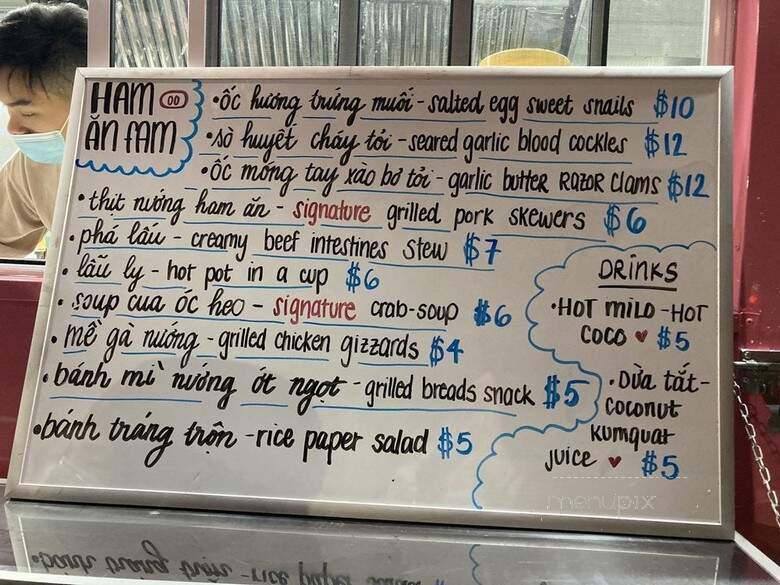 HAM
ĂN FAM
•ốc hương trứng muối - salted egg sweet snails $10
•sò huyết cháy tỏi - seared garlic blood cockles $12
•ốc móng tay xào bơ tỏi - garlic butter Razor Clams $12
•thịt nướng ham ăn - signature grilled pork skewers $6
•phá lấu - creamy beef intestines stew $7
•lẩu ly - hot pot in a cup $6
•soup cua óc heo - signature crab-soup $6
•mề gà nướng - grilled chicken gizzards $4
•bánh mì nướng ớt ngọt - grilled breads snack $5
•bánh tráng trộn - rice paper salad $5
DRINKS
•HOT MILO - HOT
COCO ♥ $5
•Dừa tắt -
coconut
kumquat
juice ♥ $5
menupix
•bánh tráng trộn - rice paper salad